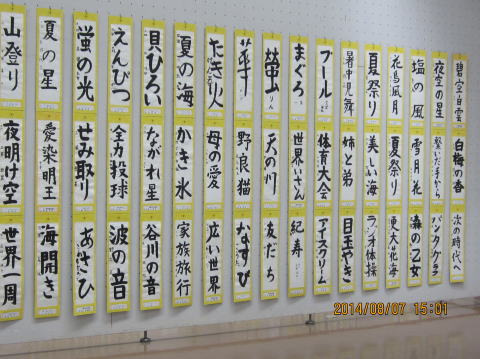 碧空白雲
白梅の香
次の時代へ
夜空の星
繋いだ手から
パンタグラ
塩の風
雪月花
森の乙女
花鳥風月
夏祭り
東大花海
夏祭り
美しい海
ラジオ体操
暑中見舞
姉と弟
目玉やき
プール
体育大会
アイスクリーム
まぐろ
世界いさん
紀寿
蛍山りん
天の川
友だち
芽
野良猫
なすび
たき火
母の愛
広い世界
夏の海
かき氷
家族旅行
貝ひろい
ながれ星
谷川の音
えんぴつ
全力投球
波の音
蛍の光
せみ取り
あさひ
夏の星
愛染明王
海開き
山登り
夜明け空
世界一周
2014/08/07 15:01